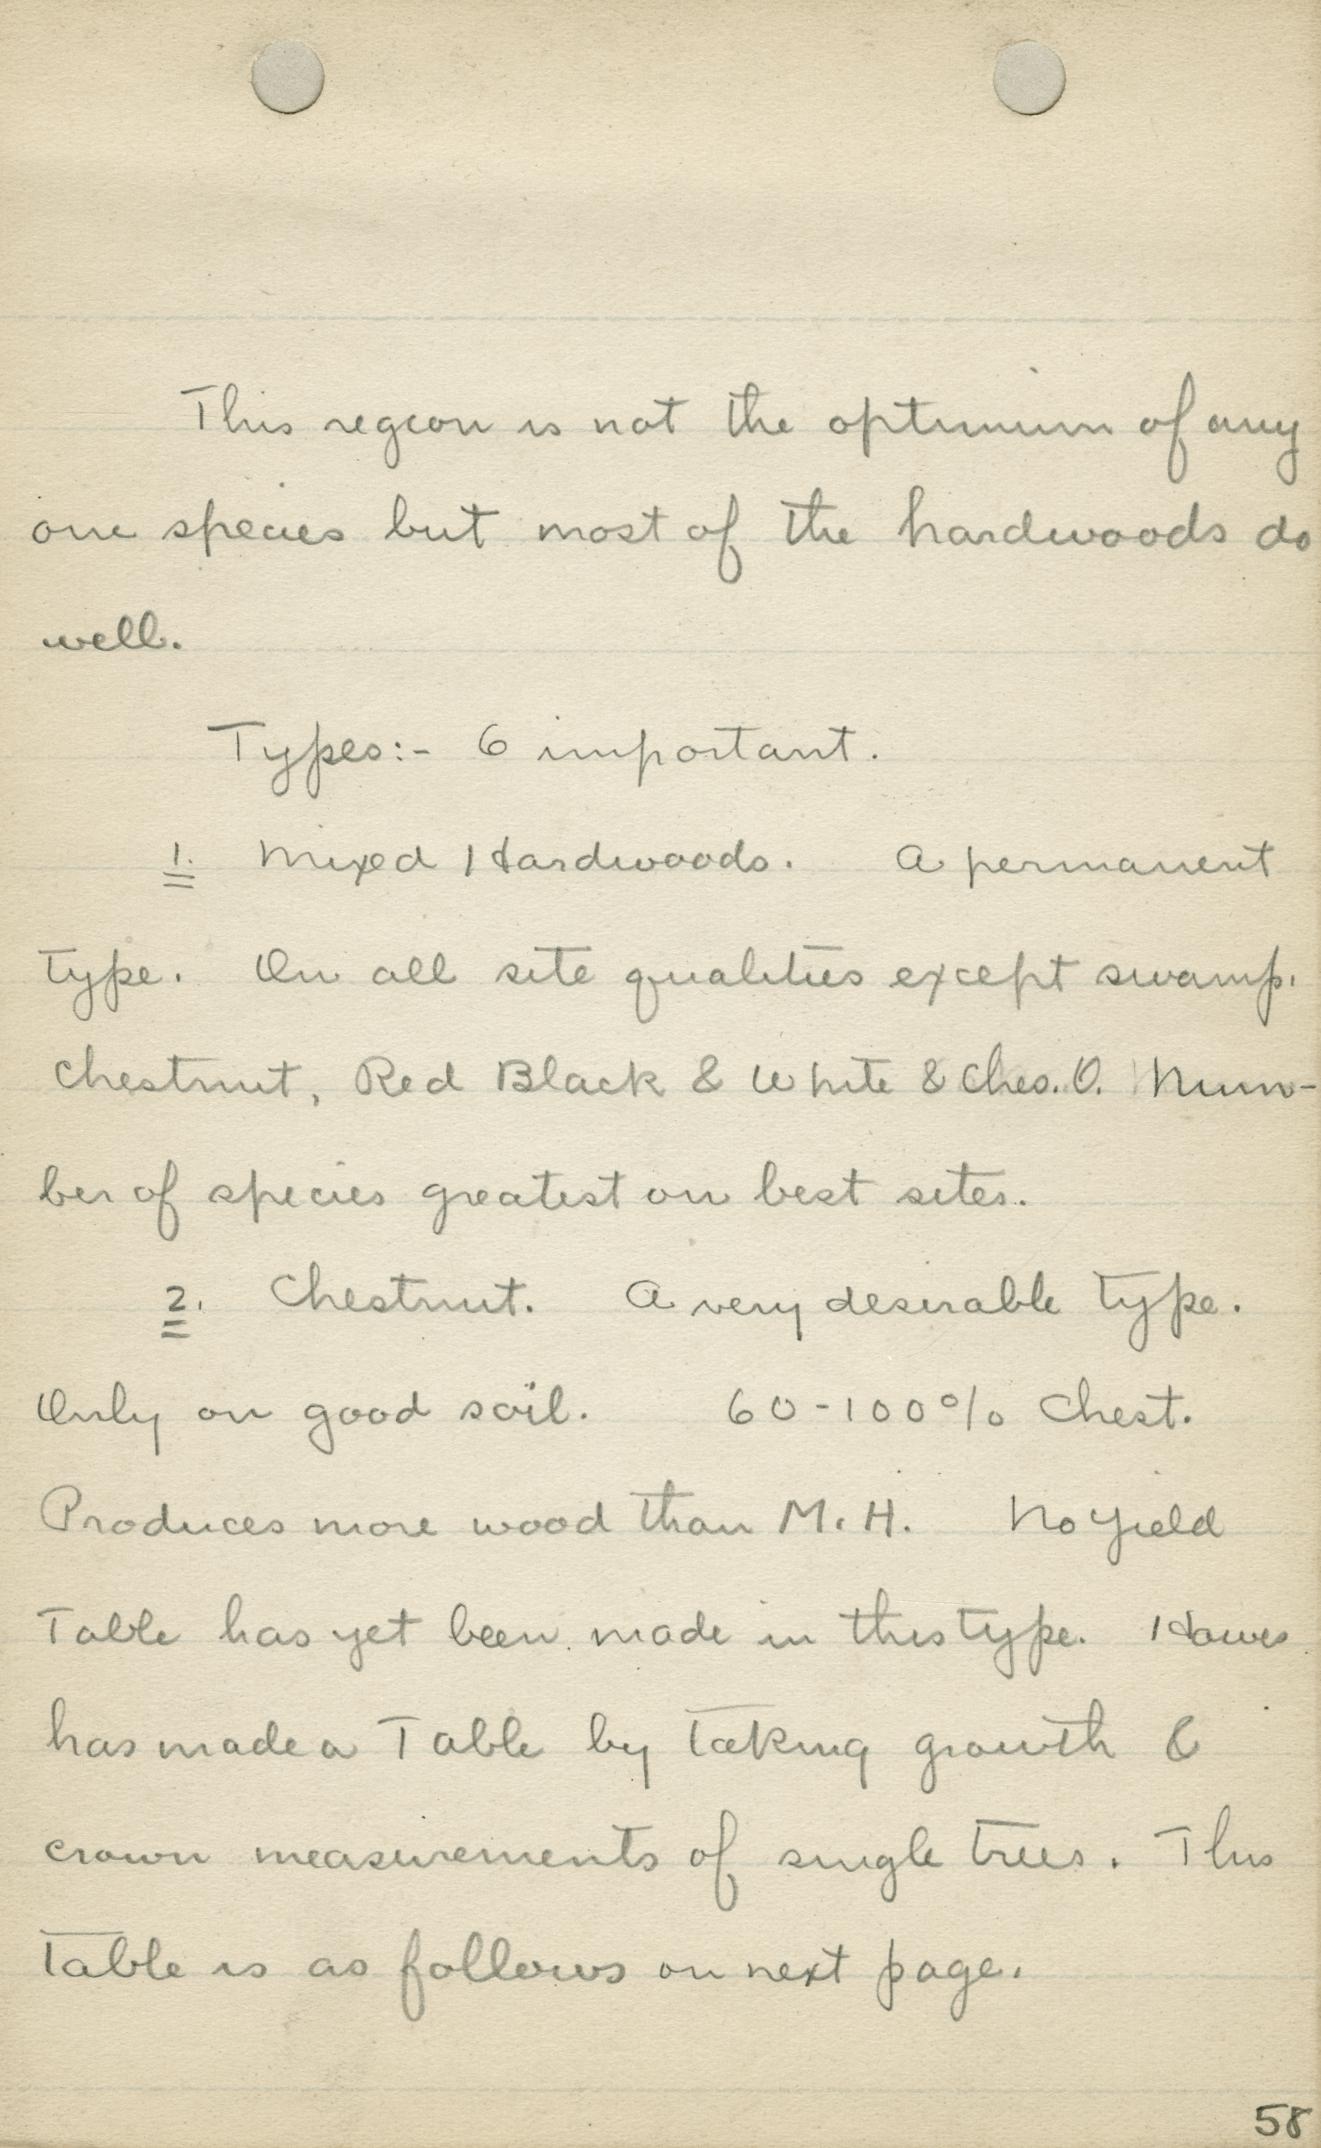 This region is not the optimum of any
one species but most of the hardwoods do
well.
Types:- 6 important.
1. Mixed Hardwoods. A permanent
type. On all site qualities except swamp.
Chestnut, Red Black & White & Ches. O. Num-
ber of species greatest on best sites.
2. Chestnut. A very desirable type.
Only on good soil. 60-100% Chest.
Produces more wood than M.H. No yield
Table has yet been made in this type. Hawes
has made a Table by taking growth &
crown measurements of single trees. This
Table is as follows on next page.
58